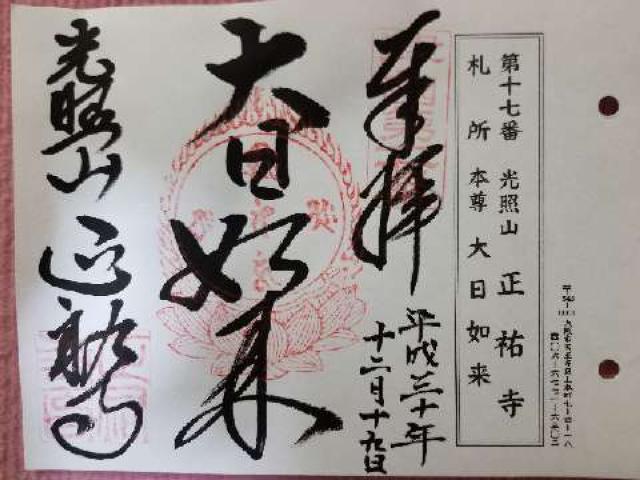 第十七番 光照山 正祐寺
札所本尊 大日如来
奉拝
平成三十年
十二月十九日
大日如来
光照山 正祐寺